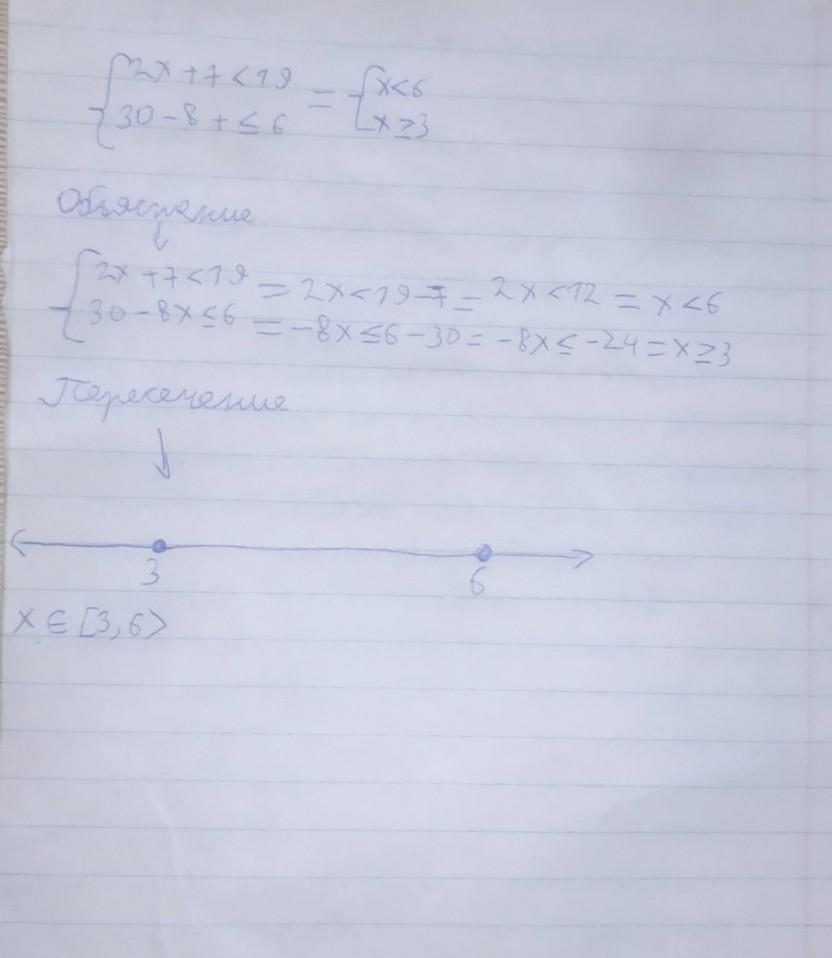 {2x+7<19 = {x<6
{30-8+≤6 {x≥3
Объяснение
↓
{2x+7<19 = 2x<19-7 = 2x<12 = x<6
{30-8x≤6 = -8x≤6-30 = -8x≤-24 = x≥3
Пересечение
↓
3 6
x∈[3,6>